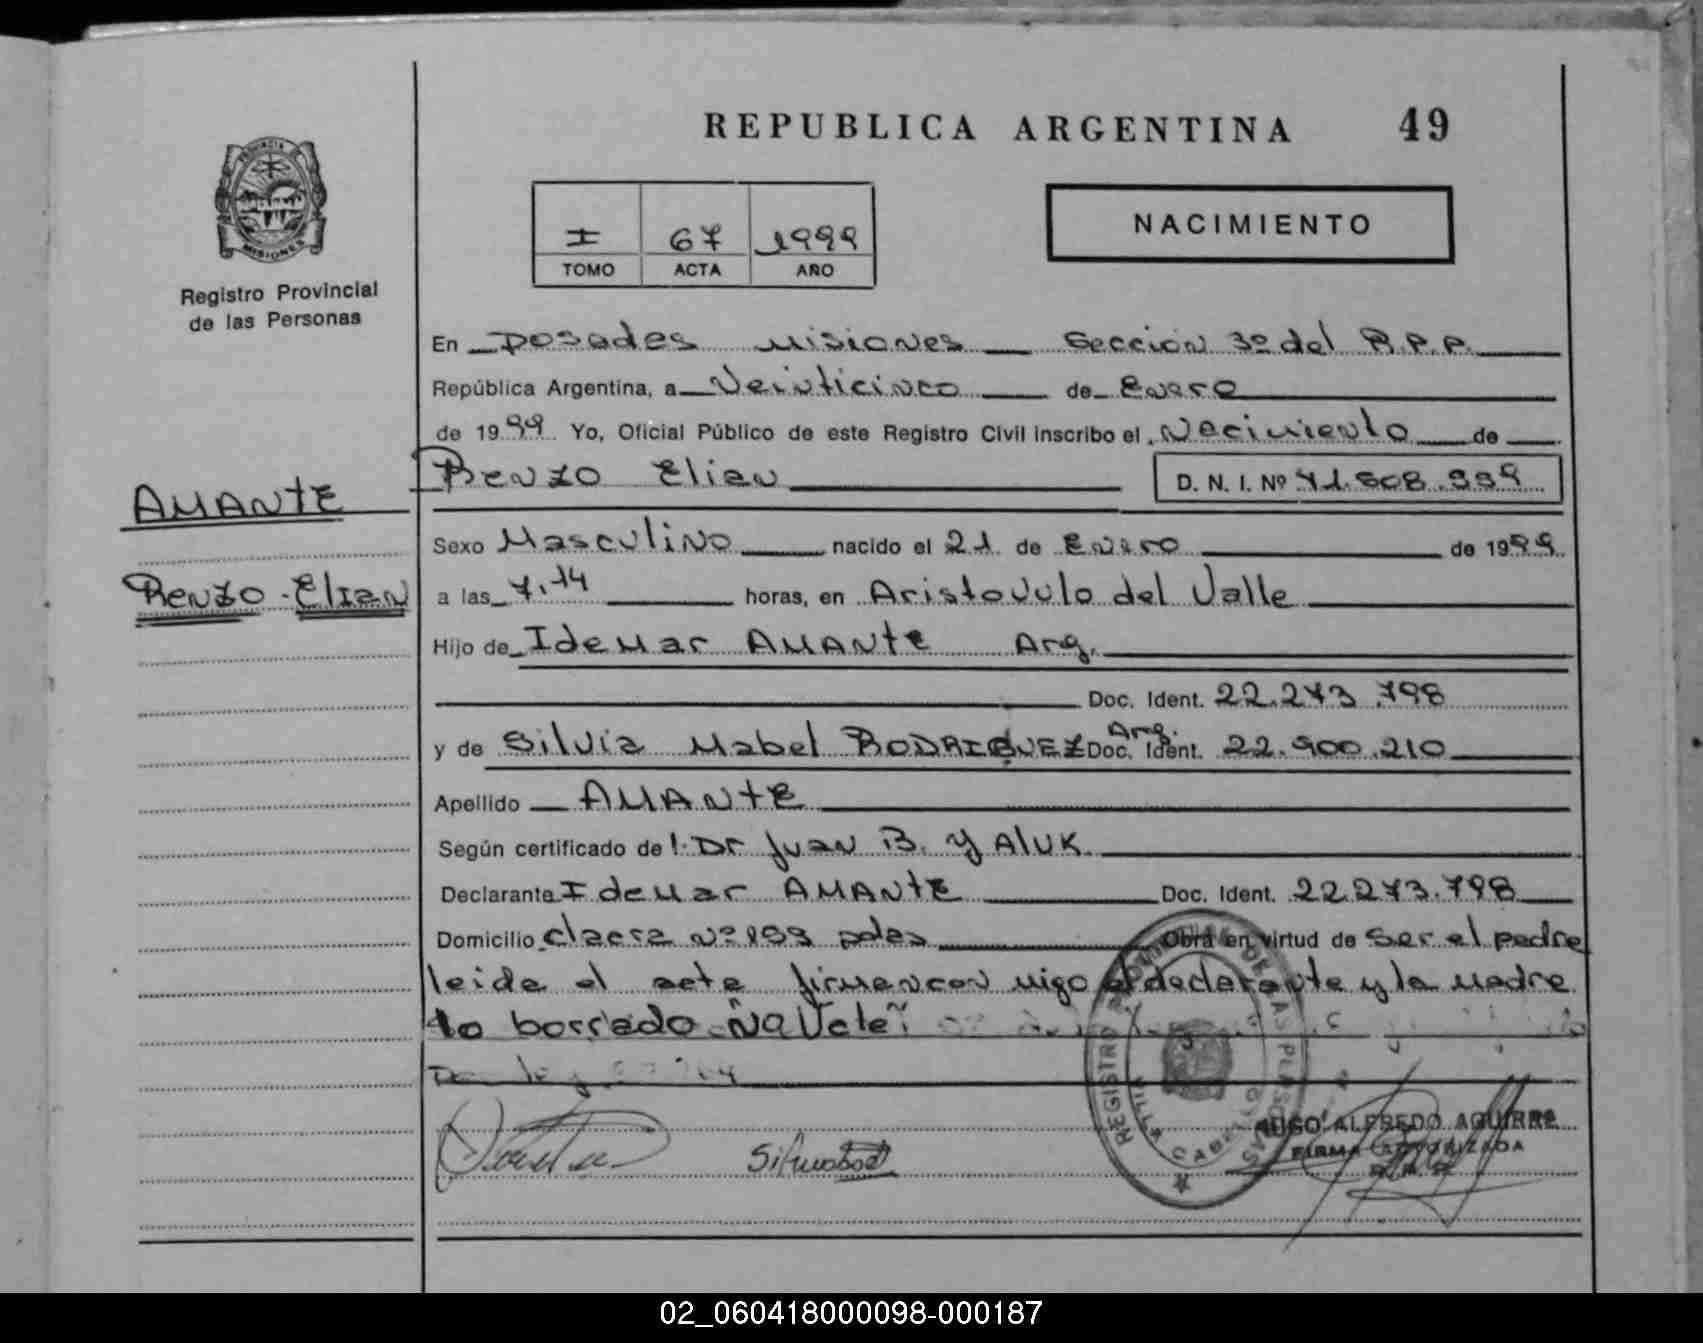 REPUBLICA ARGENTINA 49
PROVINCIA
MISIONES
Registro Provincial
de las Personas
I 67 1999
TOMO ACTA AÑO
NACIMIENTO
En Posadas Misiones Seccion 3º del R.P.P.
República Argentina, a Veinticinco de Enero
de 1999 Yo, Oficial Público de este Registro Civil inscribo el Nacimiento de
Renzo Elian D. N. I. Nº 41.508.999
AMANTE
Renzo - Elian
Sexo Masculino nacido el 21 de Enero de 1999
a las 7,14 horas, en Aristovulo del Valle
Hijo de Idemar AMANTE Arg.
Doc. Ident. 22.273.798
y de Silvia Mabel RODRIGUEZ Arg. Doc. Ident. 22.900.210
Apellido AMANTE
Según certificado de l Dr Juan B. YALUK
Declarante Idemar AMANTE Doc. Ident. 22.273.798
Domicilio Nº 199 pdas Obra en virtud de Ser el padre
leida el acta firman con migo el declarante y la madre
lo borrado "No Vale"
REGISTRO PROVINCIAL DE LAS PERSONAS
HUGO ALFREDO AGUIRRE
FIRMA AUTORIZADA
R.P.P.
02_060418000098-000187